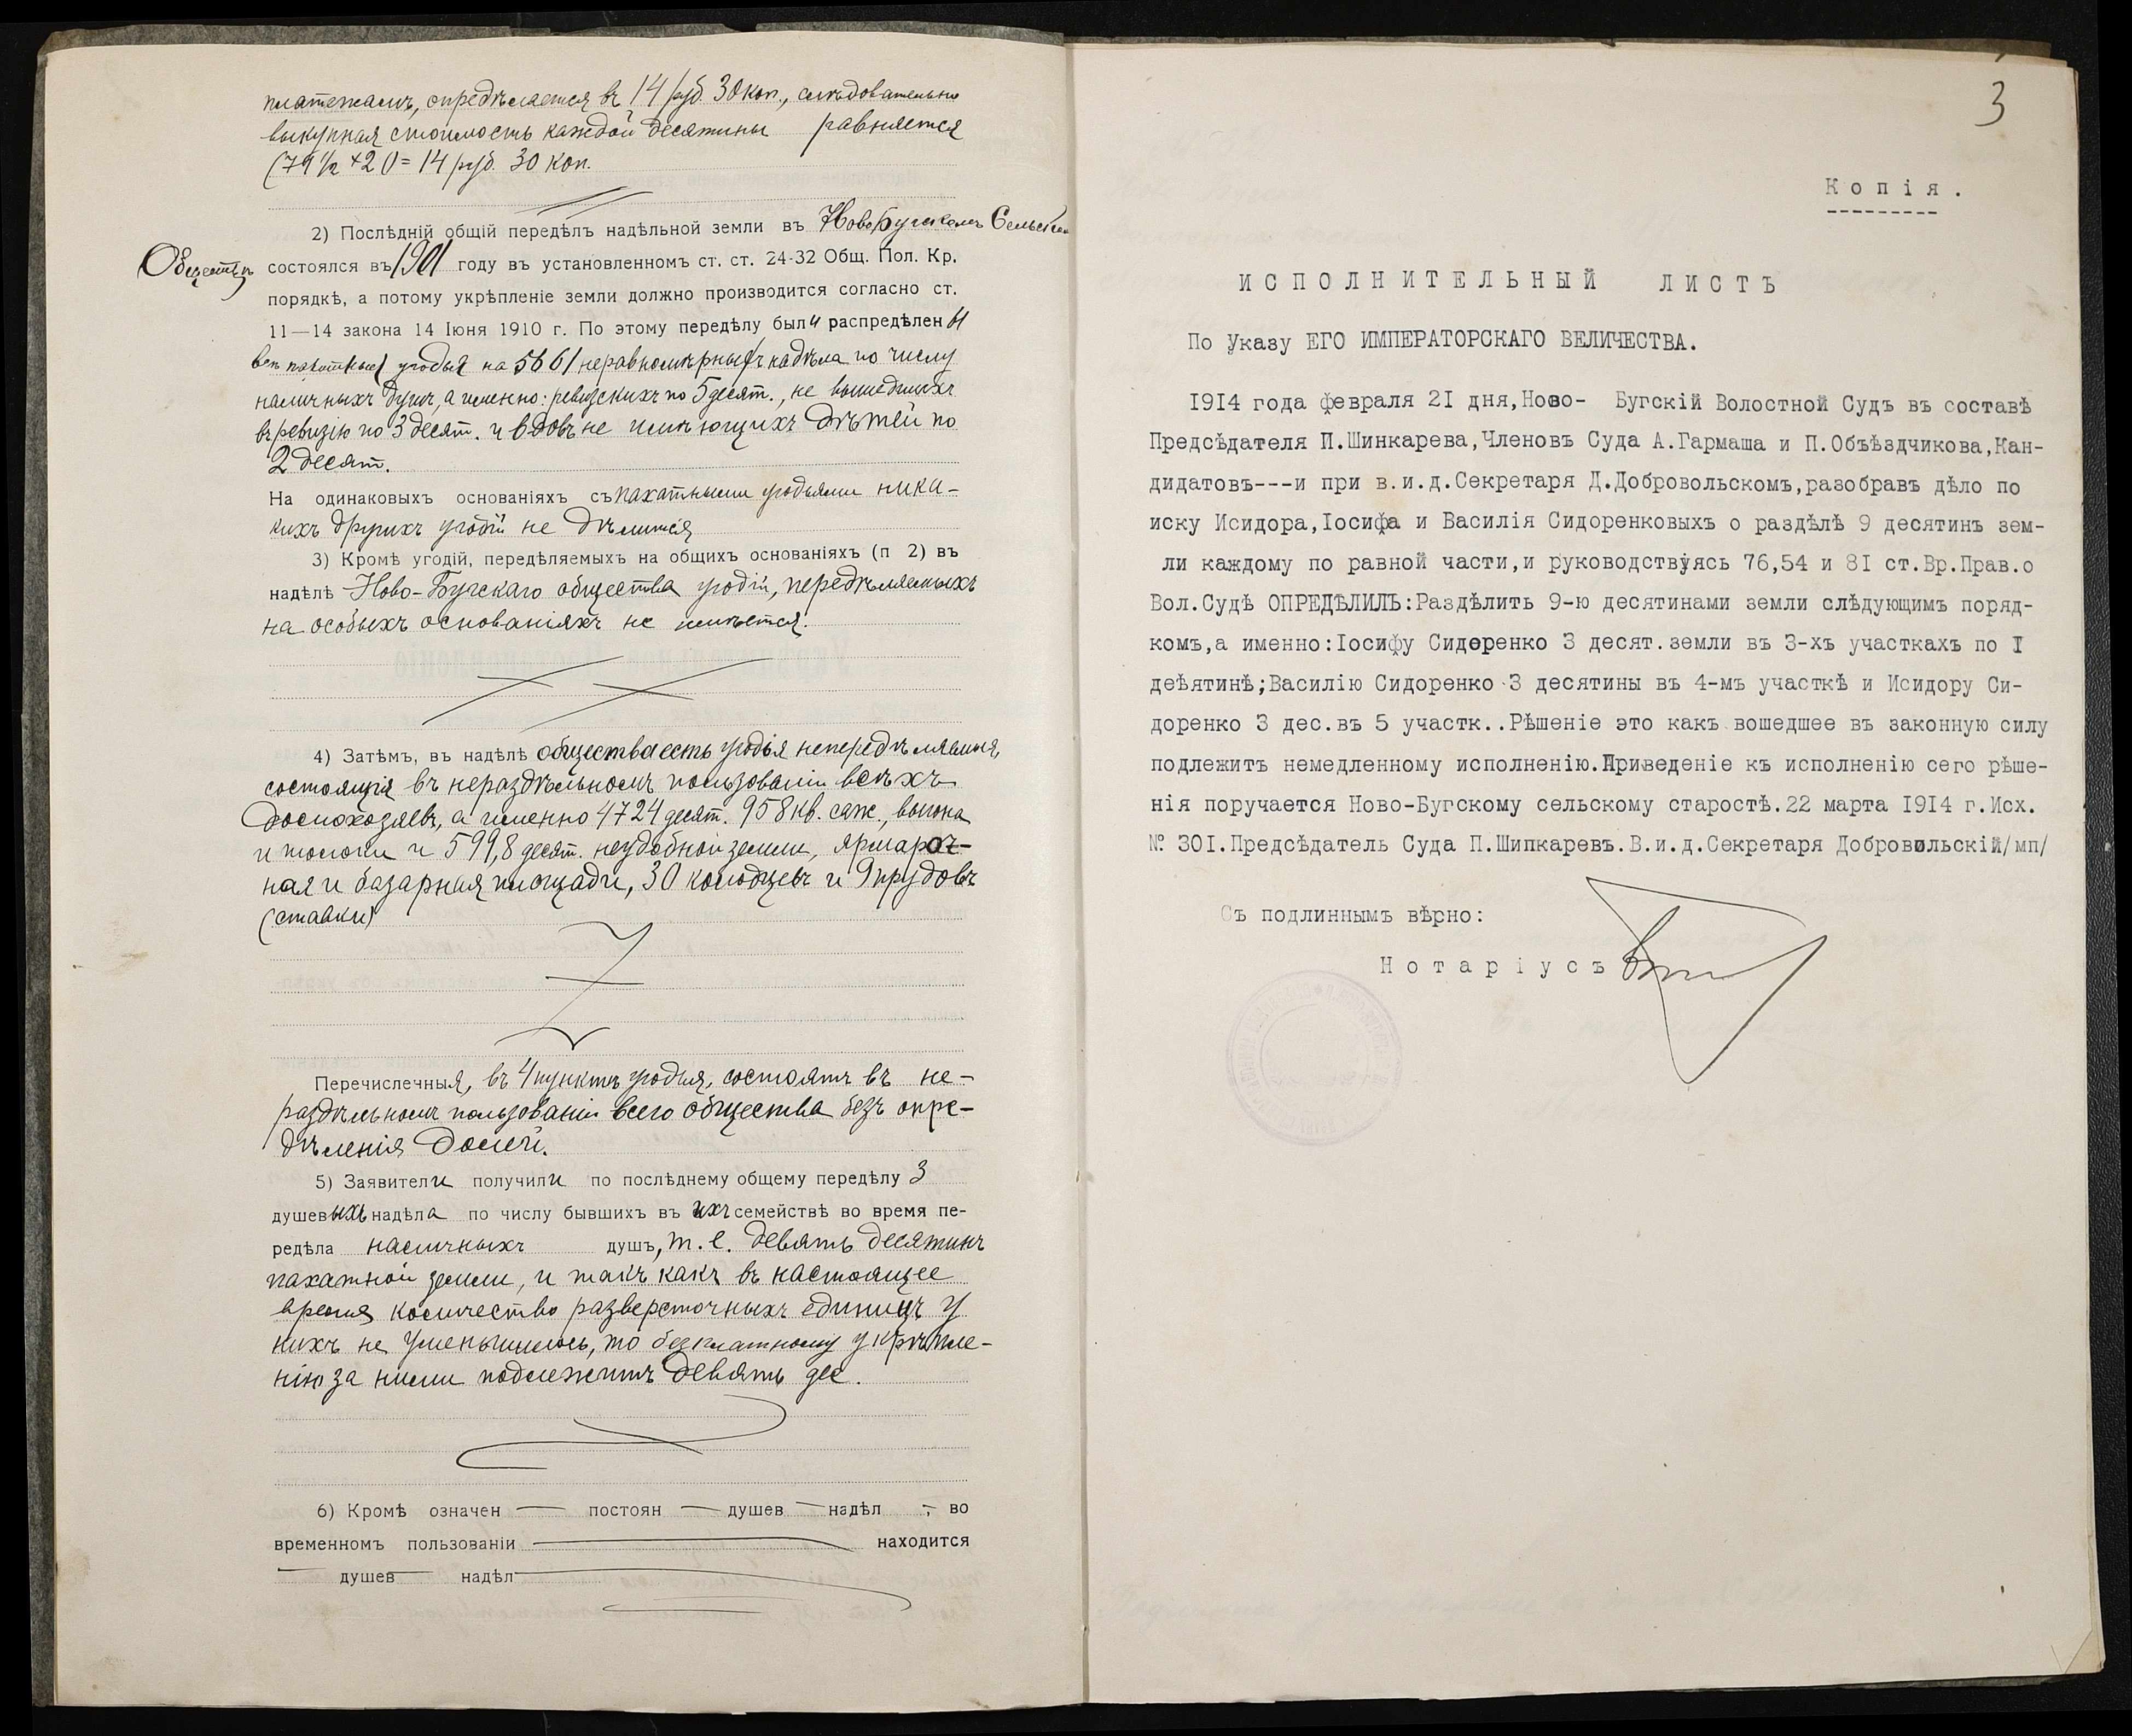 платежамъ, опредѣляется въ 14 руб. 30 коп., слѣдовательно
выкупная стоимость каждой десятины равняется
(71½ × 20 = 14 руб. 30 коп.
2) Послѣднiй общiй передѣлъ надѣльной земли въ Ново Бугскомъ Сельском
Обществѣ состоялся въ 1901 году въ установленномъ ст. ст. 24-32 Общ. Пол. Кр.
порядкѣ, а потому укрѣпленiе земли должно производится согласно ст.
11—14 закона 14 Iюня 1910 г. По этому передѣлу были распредѣлены
всѣ пахотныя угодья на 5661 неравномѣрныхъ надѣла по числу
наличныхъ душъ, а именно: ревизскихъ по 5 десят., не вошедшихъ
въ ревизiю по 3 десят. и вдовъ не имѣющихъ дѣтей по
2 десят.
На одинаковыхъ основанiяхъ съ пахатными угодьями ника-
кихъ другихъ угодiй не дѣлится
3) Кромѣ угодiй, передѣляемыхъ на общихъ основанiяхъ (п 2) въ
надѣлѣ Ново-Бугскаго общества угодiй, передѣляемыхъ
на особыхъ основанiяхъ не имѣется.
4) Затѣмъ, въ надѣлѣ общества есть угодья непередѣляемыя,
состоящiя въ нераздѣльномъ пользованiи всѣхъ
домохозяевъ, а именно 4724 десят. 958 кв. саж., выгона
и толоки и 599,8 десят. неудобной земли, ярмароч-
ная и базарная площади, 30 колодцевъ и 9 прудовъ
(ставки)
Перечислечныя, въ 4 пунктѣ угодья, состоятъ въ не-
раздѣльномъ пользованiи всего общества безъ опре-
дѣленiя долей.
5) Заявители получили по послѣднему общему передѣлу 3
душевыхъ надѣла по числу бывшихъ въ ихъ семействѣ во время пе-
редѣла наличныхъ душъ, т. е. девять десятинъ
пахатной земли, и такъ какъ въ настоящее
время количество разверсточныхъ единицъ у
нихъ не уменьшилось, то безплатному укрѣпле-
нiю за ними подлежитъ девять дес.
6) Кромѣ означен — постоян — душев — надѣл ; во
временномъ пользованiи — находится
— душев — надѣл —
3
Копiя.
ИСПОЛНИТЕЛЬНЫЙ ЛИСТЪ
По Указу ЕГО ИМПЕРАТОРСКАГО ВЕЛИЧЕСТВА.
1914 года февраля 21 дня,Ново- Бугскiй Волостной Судъ въ составѣ
Предсѣдателя П.Шинкарева,Членовъ Суда А.Гармаша и П.Объѣздчикова,Кан-
дидатовъ---и при в.и.д.Секретаря Д.Добровольскомъ,разобравъ дѣло по
иску Исидора,Iосифа и Василiя Сидоренковыхъ о раздѣлѣ 9 десятинъ зем-
ли каждому по равной части,и руководствуясь 76,54 и 81 ст.Вр.Прав.о
Вол.Судѣ ОПРЕДѢЛИЛЪ:Раздѣлить 9-ю десятинами земли слѣдующимъ поряд-
комъ,а именно:Iосифу Сидоренко 3 десят.земли въ 3-хъ участкахъ по I
деѣятинѣ;Василiю Сидоренко 3 десятины въ 4-мъ участкѣ и Исидору Си-
доренко 3 дес.въ 5 участк..Рѣшенiе это какъ вошедшее въ законную силу
подлежитъ немедленному исполненiю.Приведенiе къ исполненiю сего рѣше-
нiя поручается Ново-Бугскому сельскому старостѣ.22 марта 1914 г.Исх.
№ 301.Предсѣдатель Суда П.Шипкаревъ.В.и.д.Секретаря Добровольскiй/мп/
Съ подлиннымъ вѣрно:
Нотарiусъ